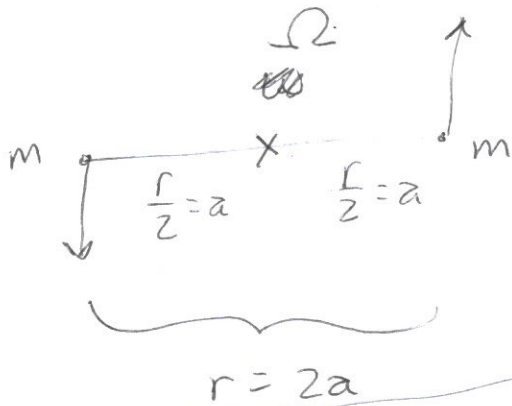 Ω
m × m
r/2 = a r/2 = a
r = 2a